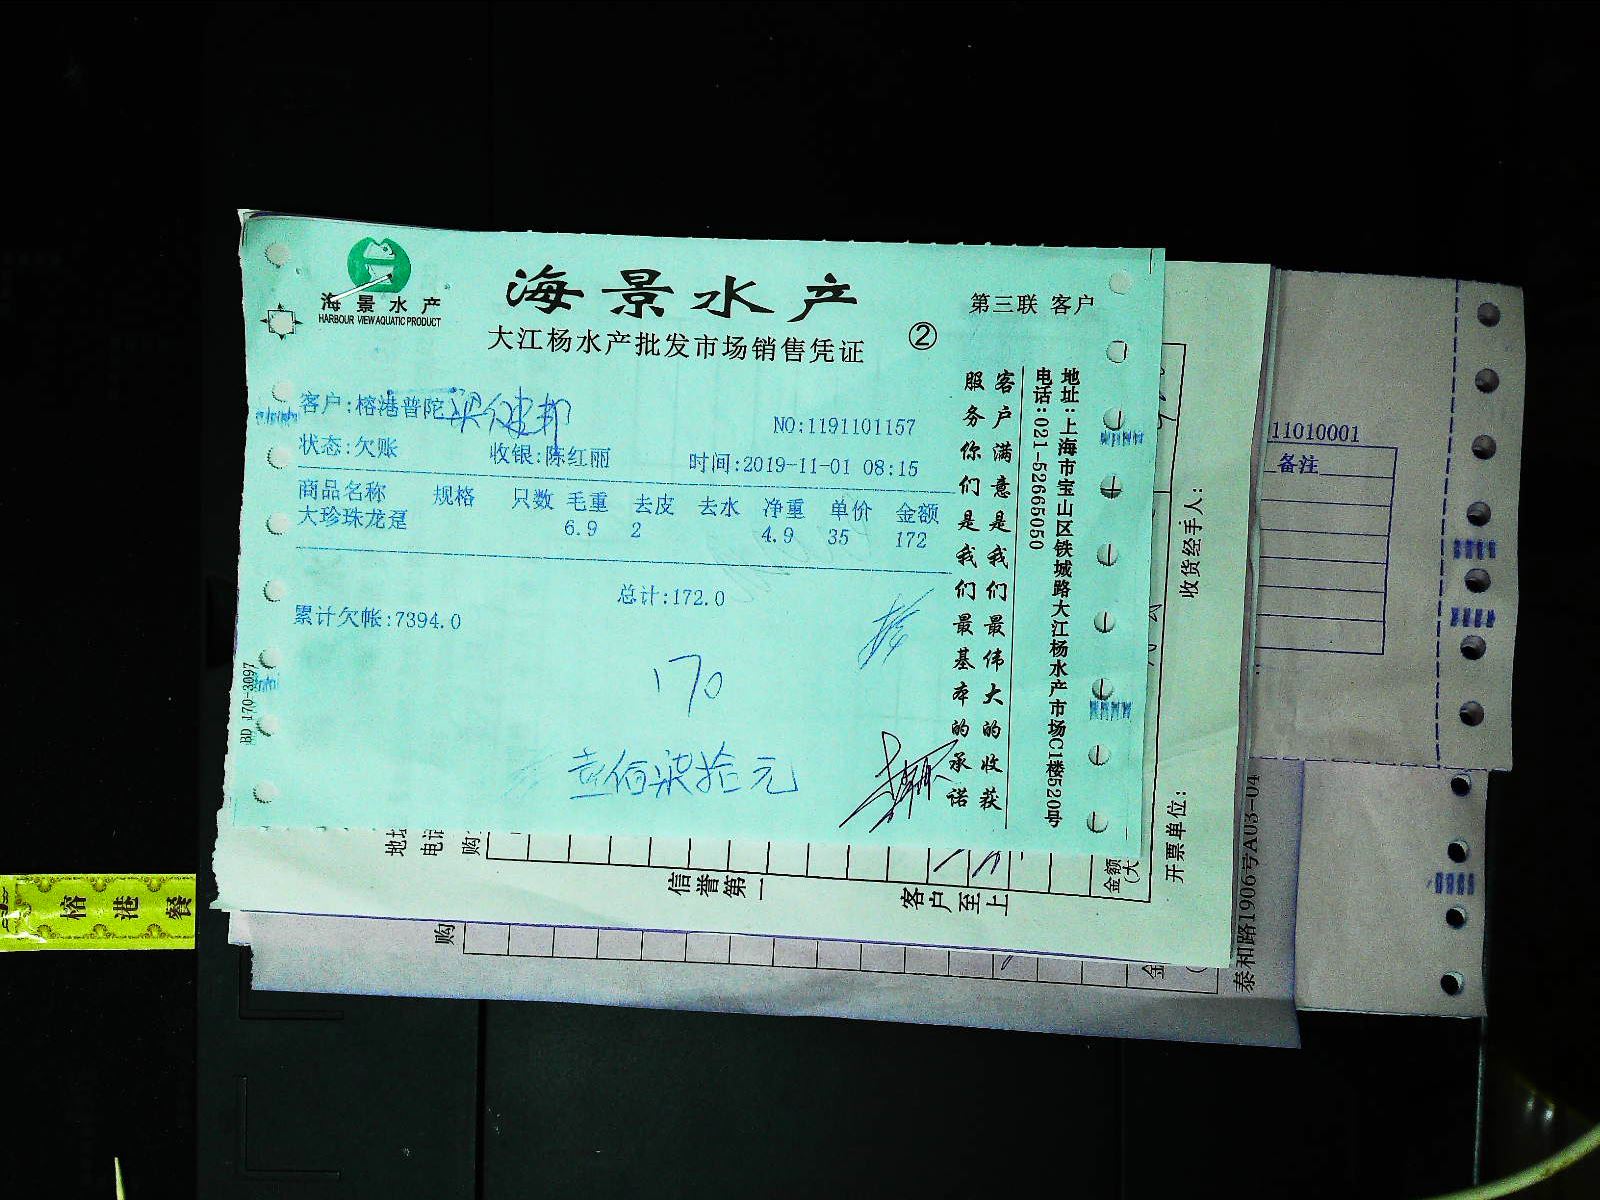 海景水产
HARBOUR VIEW AQUATIC PRODUCT
海景水产
大江杨水产批发市场销售凭证
②
第三联 客户
客户:榕港普陀
NO:1191101157
状态:欠账 收银:陈红丽 时间:2019-11-01 08:15
商品名称 规格 只数 毛重 去皮 去水 净重 单价 金额
大珍珠龙趸 6.9 2 4.9 35 172
总计:172.0
累计欠帐:7394.0
170
壹佰柒拾元
客户满意是我们最伟大的收获
服务你们是我们最基本的承诺
地址:上海市宝山区铁城路大江杨水产市场C1楼520号
电话:021-52665050
BD 170-3097
收货经手人:
开票单位:
地
电
购
信誉第一
客户至上
金额
(大
购
金
11010001
备注
泰和路1906号A03-04
榕港餐